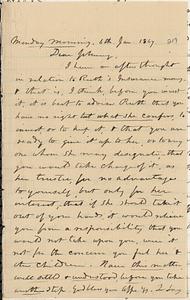 Monday morning, 6th Jan. 1867.
Dear Johnny
I have an after thought
in relation to Ruth's Insurance money
& that is, I think before you invest
it, it is best to advise Ruth that you
have no right but what she confers, to
invest or to keep it & that you are
ready to give it up to her, or to any
one whom she may designate, that
you would take charge of it, as
her trustee for no advantages
to yourself but only for her
interest, that if she should take it
out of your hands, it would relieve
you from a responsibility that you
would not take upon you, were it
not for the concern you feel for her
& the children. Have this matter
well settled & understood before you take
another step. God bless you